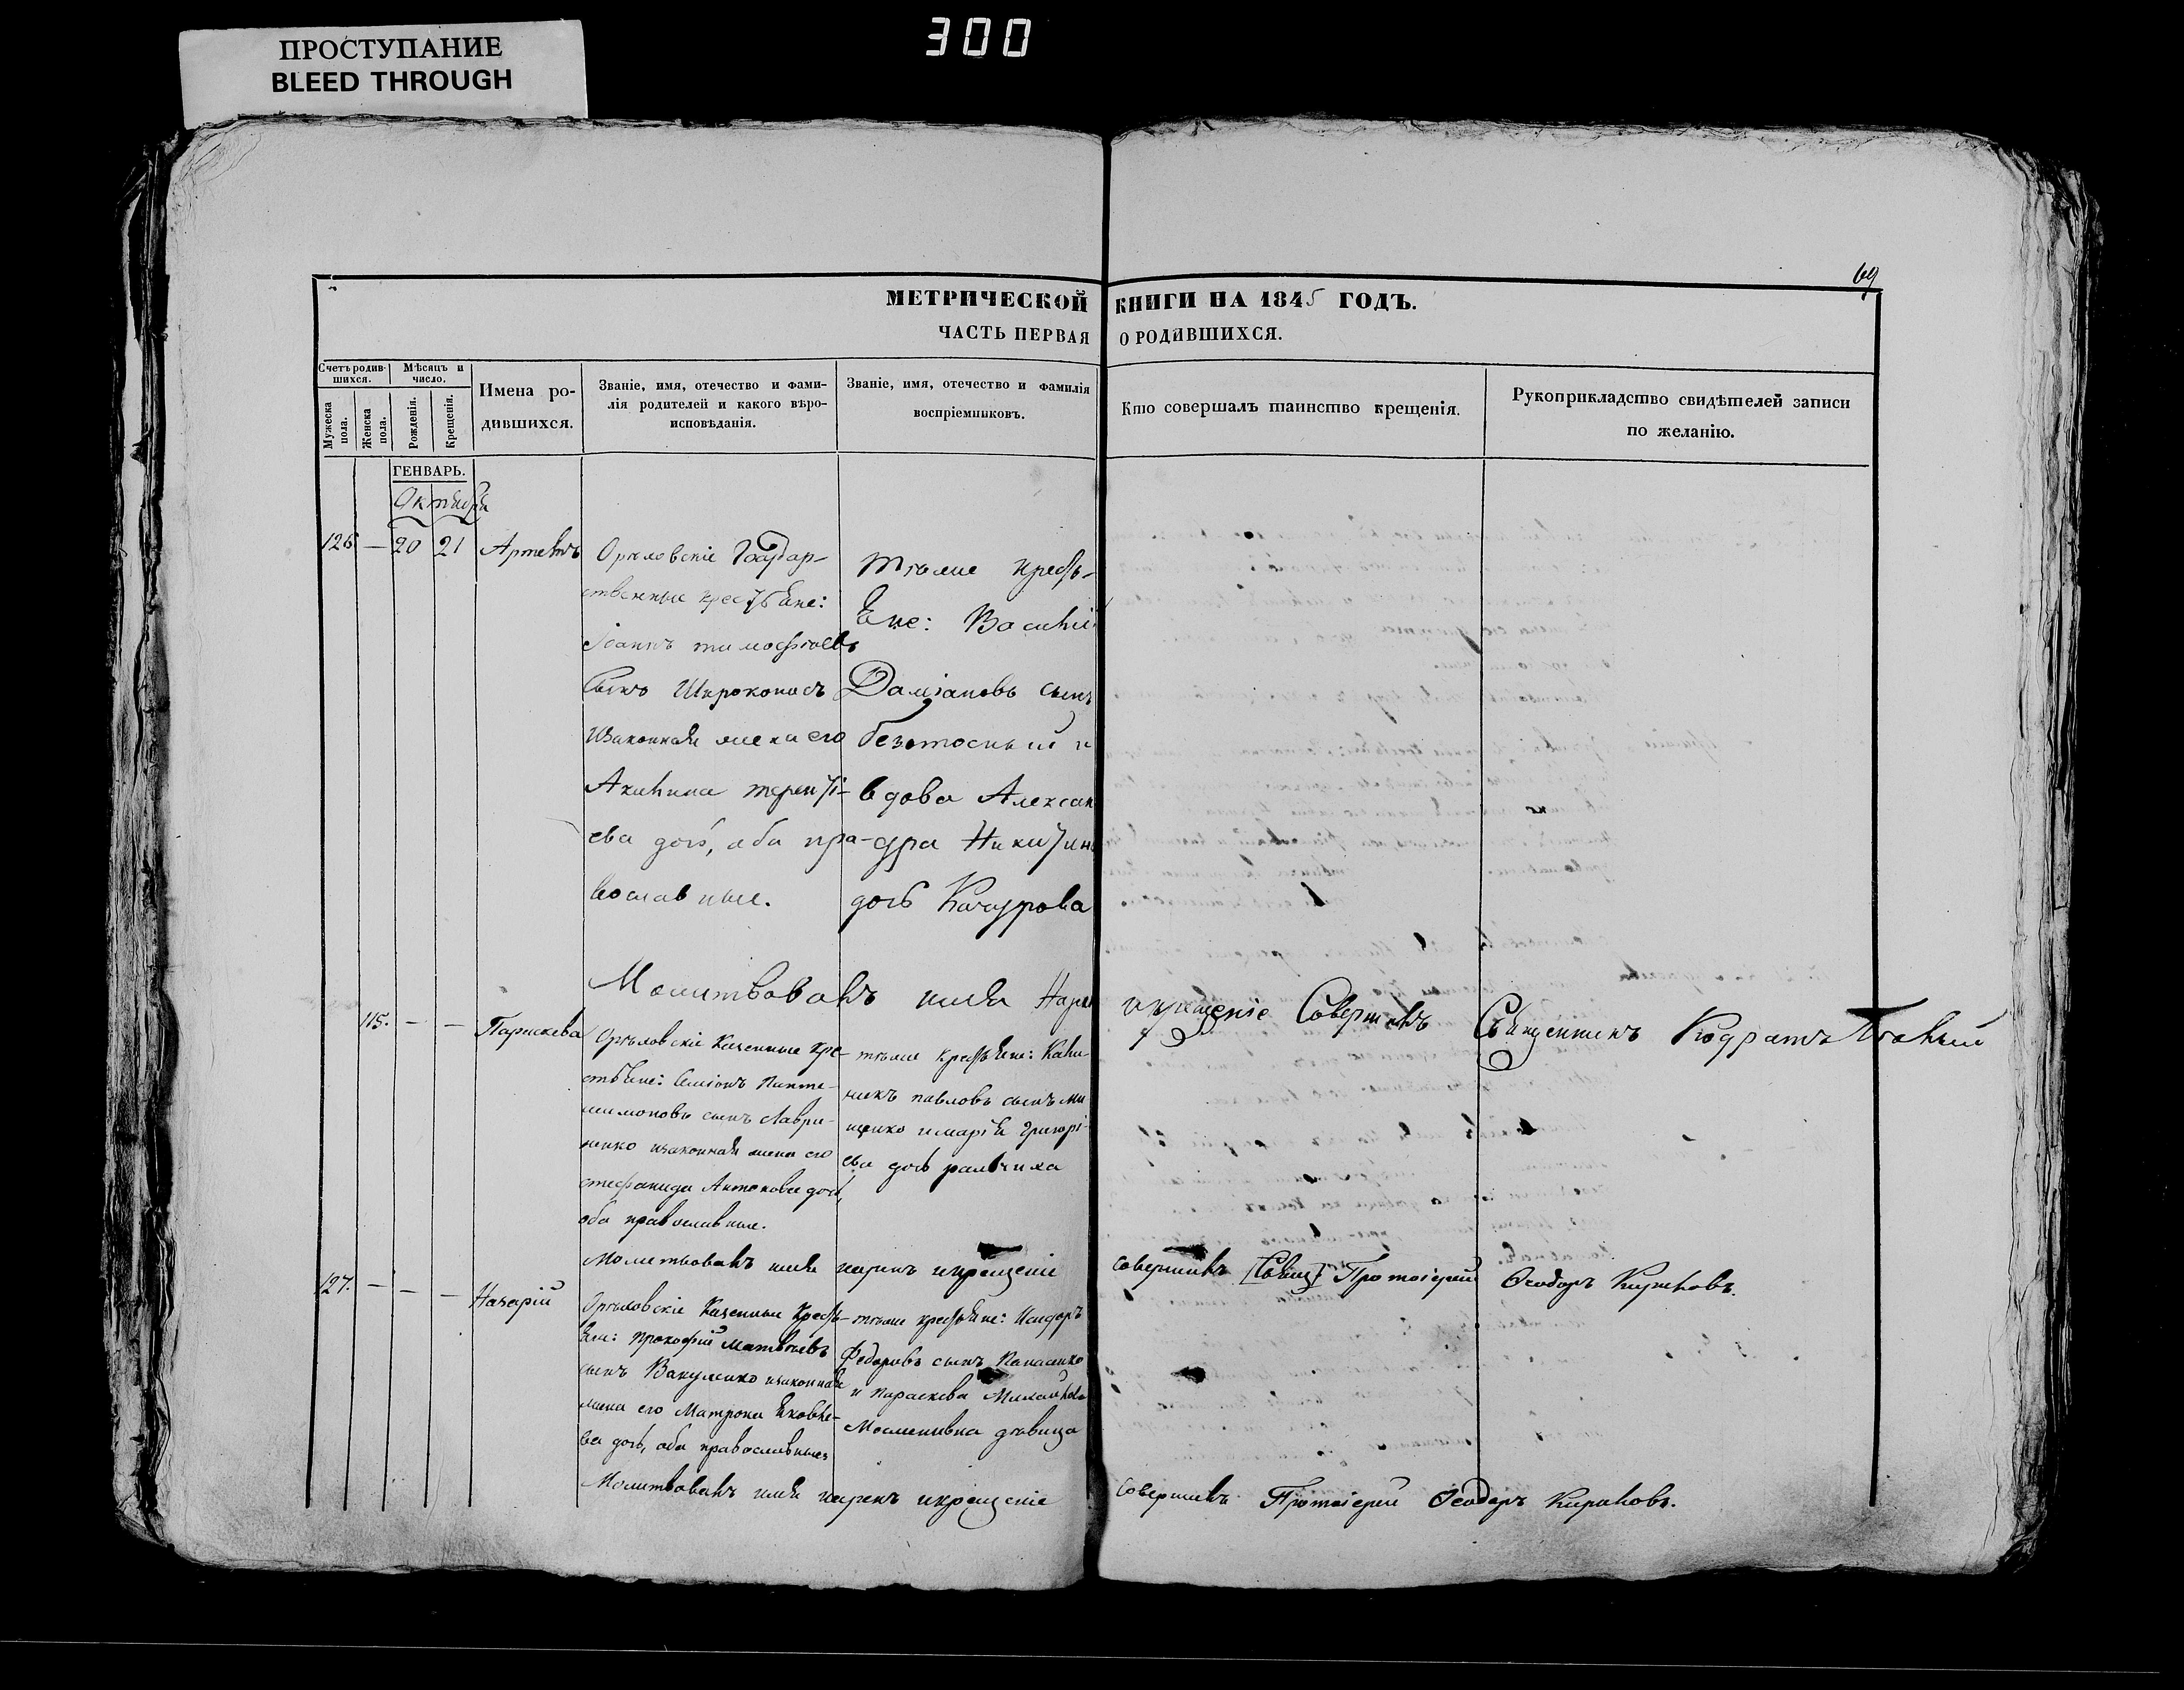 300
ПРОСТУПАНИЕ
BLEED THROUGH
69
МЕТРИЧЕСКОЙ КНИГИ НА 1845 ГОДЪ.
ЧАСТЬ ПЕРВАЯ О РОДИВШИХСЯ.
Счетъ родив-
шихся.
Мужеска
пола.
Женска
пола.
Мѣсяцъ и
число.
Рожденія.
Крещенія.
Имена ро-
дившихся.
Званіе, имя, отечество и фами-
лія родителей и какого вѣро-
исповѣданія.
Званіе, имя, отечество и фамилія
воспріемниковъ.
Кто совершалъ таинство крещенія.
Рукоприкладство свидѣтелей записи
по желанію.
ГЕНВАРЬ.
Октября
126 — 20 21
Орѣловскіе Государ-
ственные крестьяне:
Іоаннъ тимофѣевъ
сынъ Широконосъ
изаконная жена его
Акилина теренті-
ева дочь, оба пра-
вославные.
тѣже кресть-
яне: Василій
Даміановъ сынъ
безотосный и
вдова Алексан
дра Никитина
дочь Качурова
Молитвовалъ имя Нарекъ
икрещеніе Совершилъ Священникъ Кодратъ
115. — —
Параскева
Орѣловскіе Казенные кре-
стьяне: Симіонъ Панте-
лимоновъ сынъ Лаври-
ненко изаконная жена его
стефанида Антонова дочь,
оба православные.
тѣже крестьяне: Кали-
никъ павловъ сынъ Ми
щенко имарія григорі-
ева дочь
Молитвовалъ имя нарекъ икрещеніе
совершилъ [Свящ] Протоіерей Ѳеодоръ Кириловъ.
127. — — —
Назарій
Орѣловскіе Казенные Кресть-
яне: Прокофій Матвѣевъ
сынъ Вакуленко изаконная
жена его Матрона Яковле-
ва дочь, оба православные.
тѣже крестьяне: Исидоръ
Федоровъ сынъ Панасенко
и Параскева Михайлова
дѣвица
Молитвовалъ имя нарекъ икрещеніе
совершилъ Протоіерей Ѳеодоръ Кириловъ.